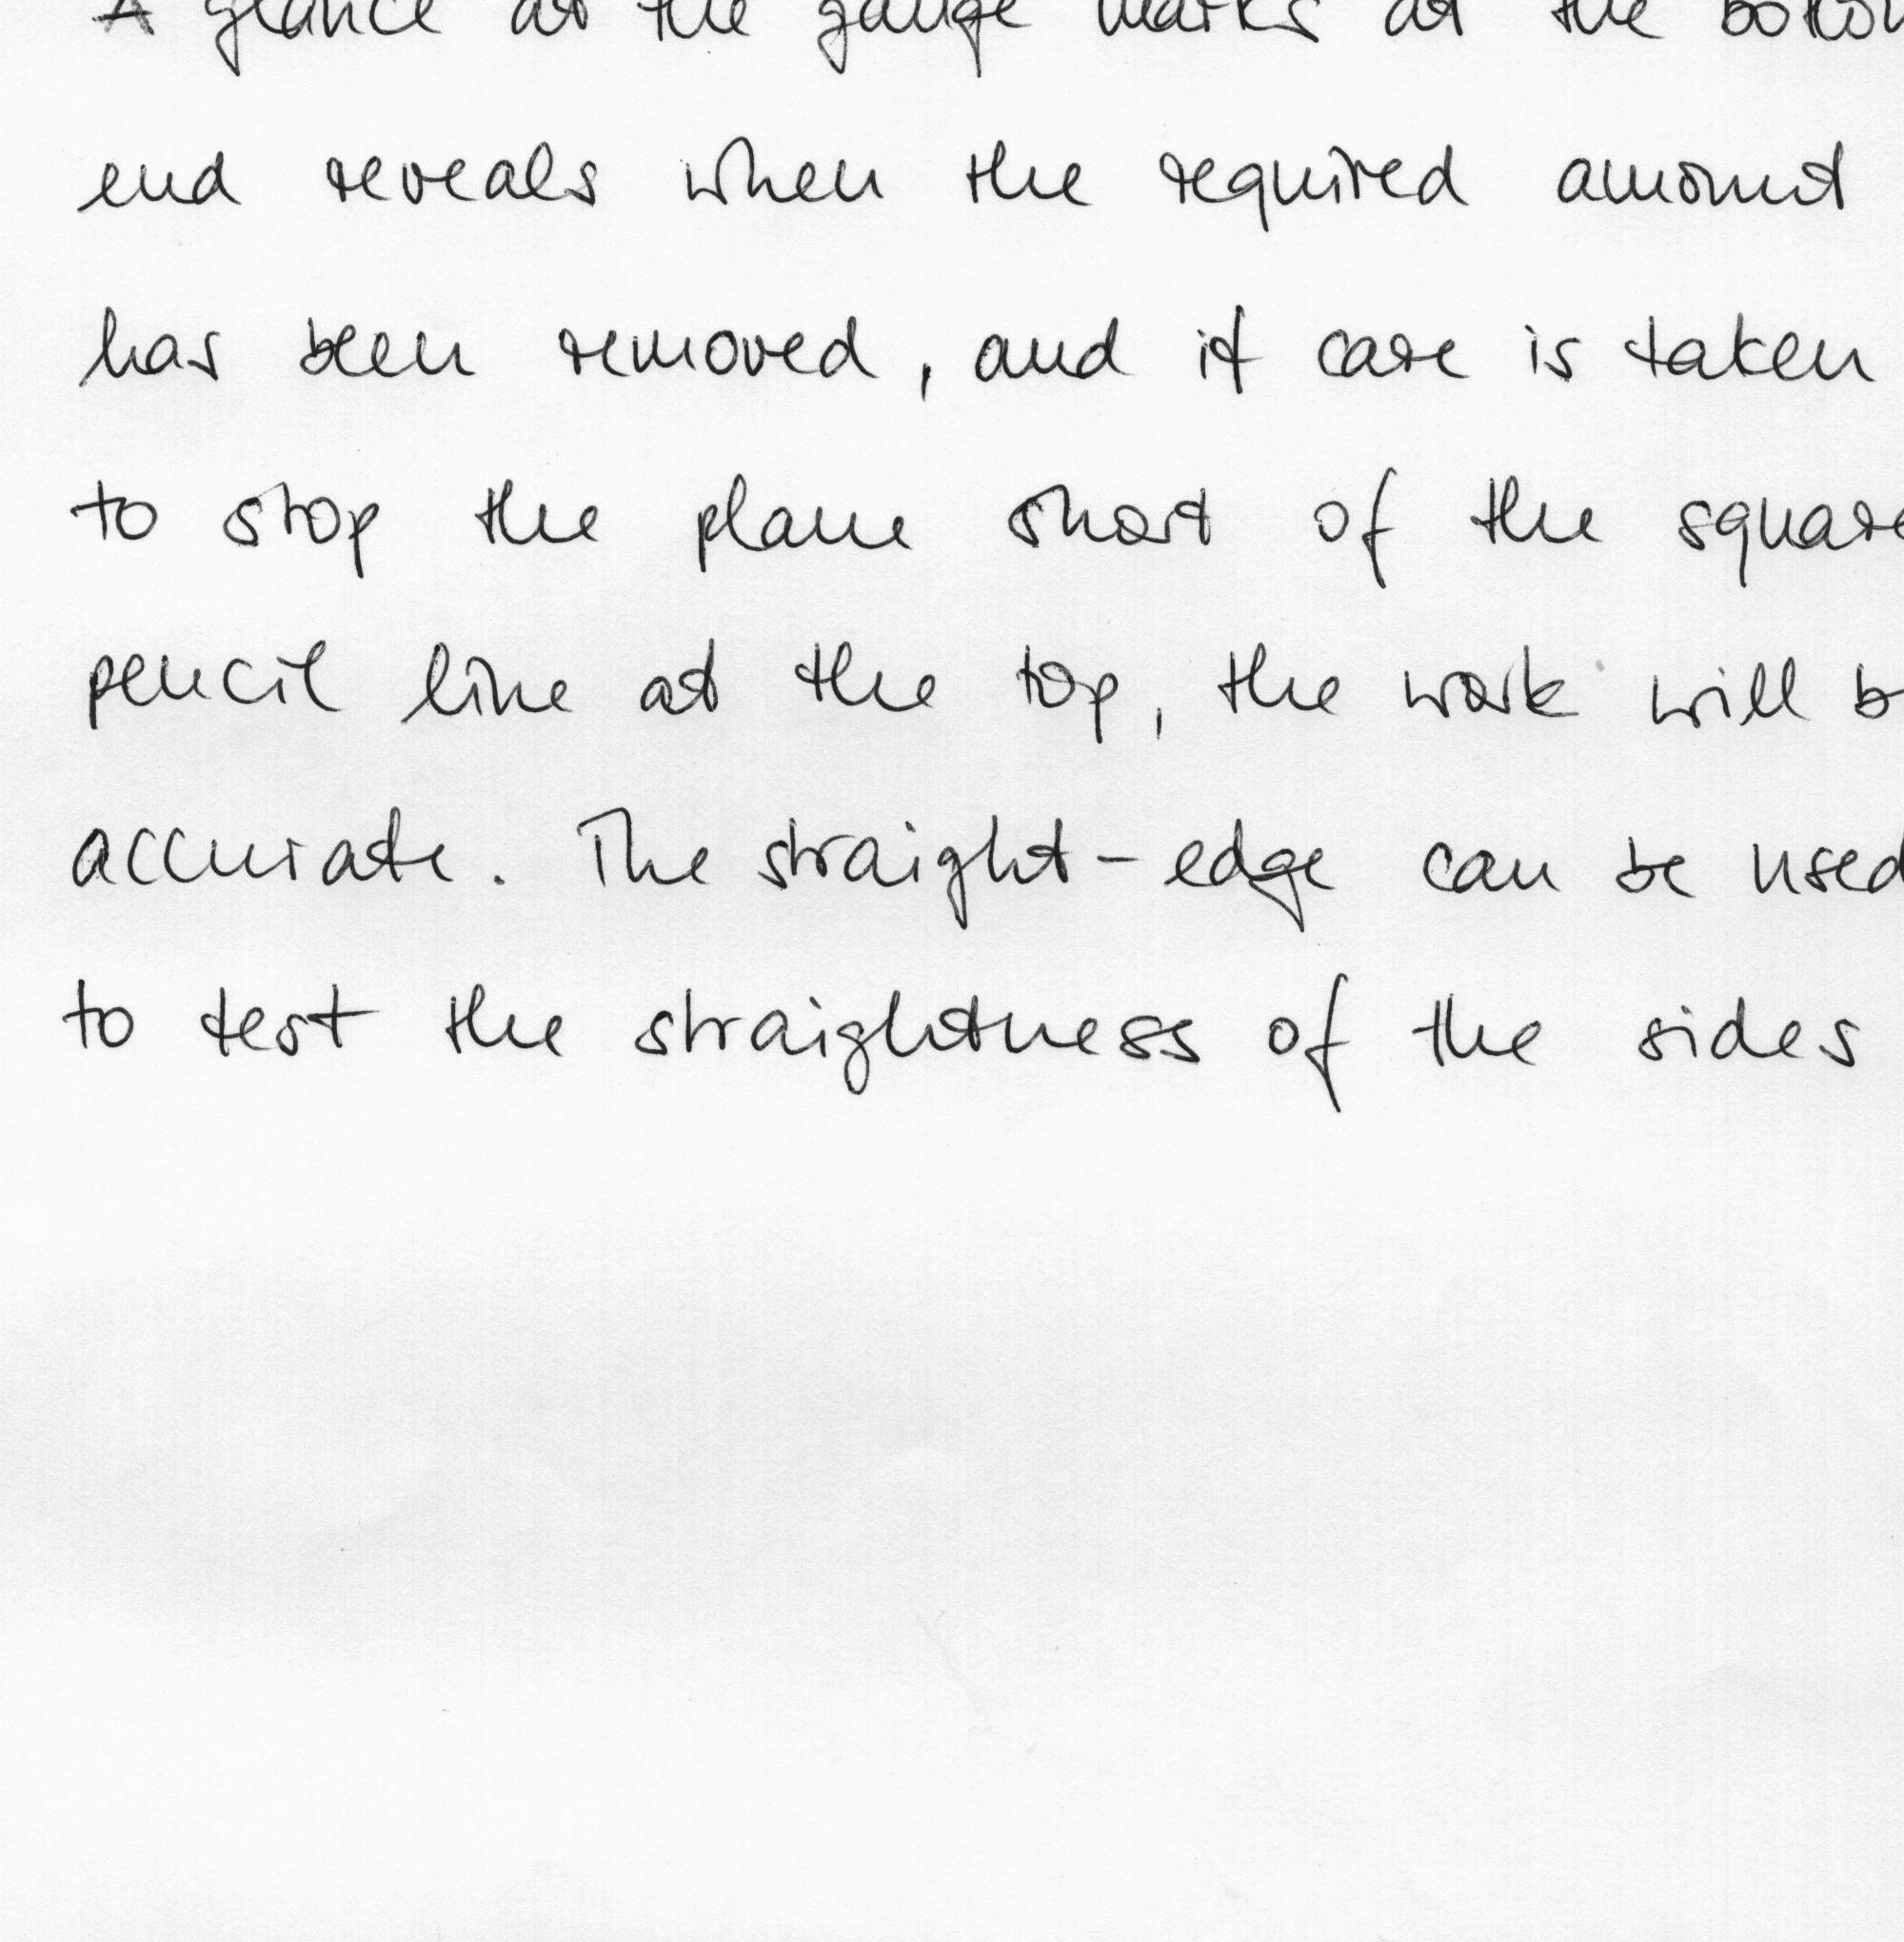 A glance at the gauge marks at the bottom
end reveals when the required amount
has been removed, and if care is taken
to stop the plane short of the square
pencil line at the top, the work will b
accurate. The straight-edge can be used
to test the straightness of the sides